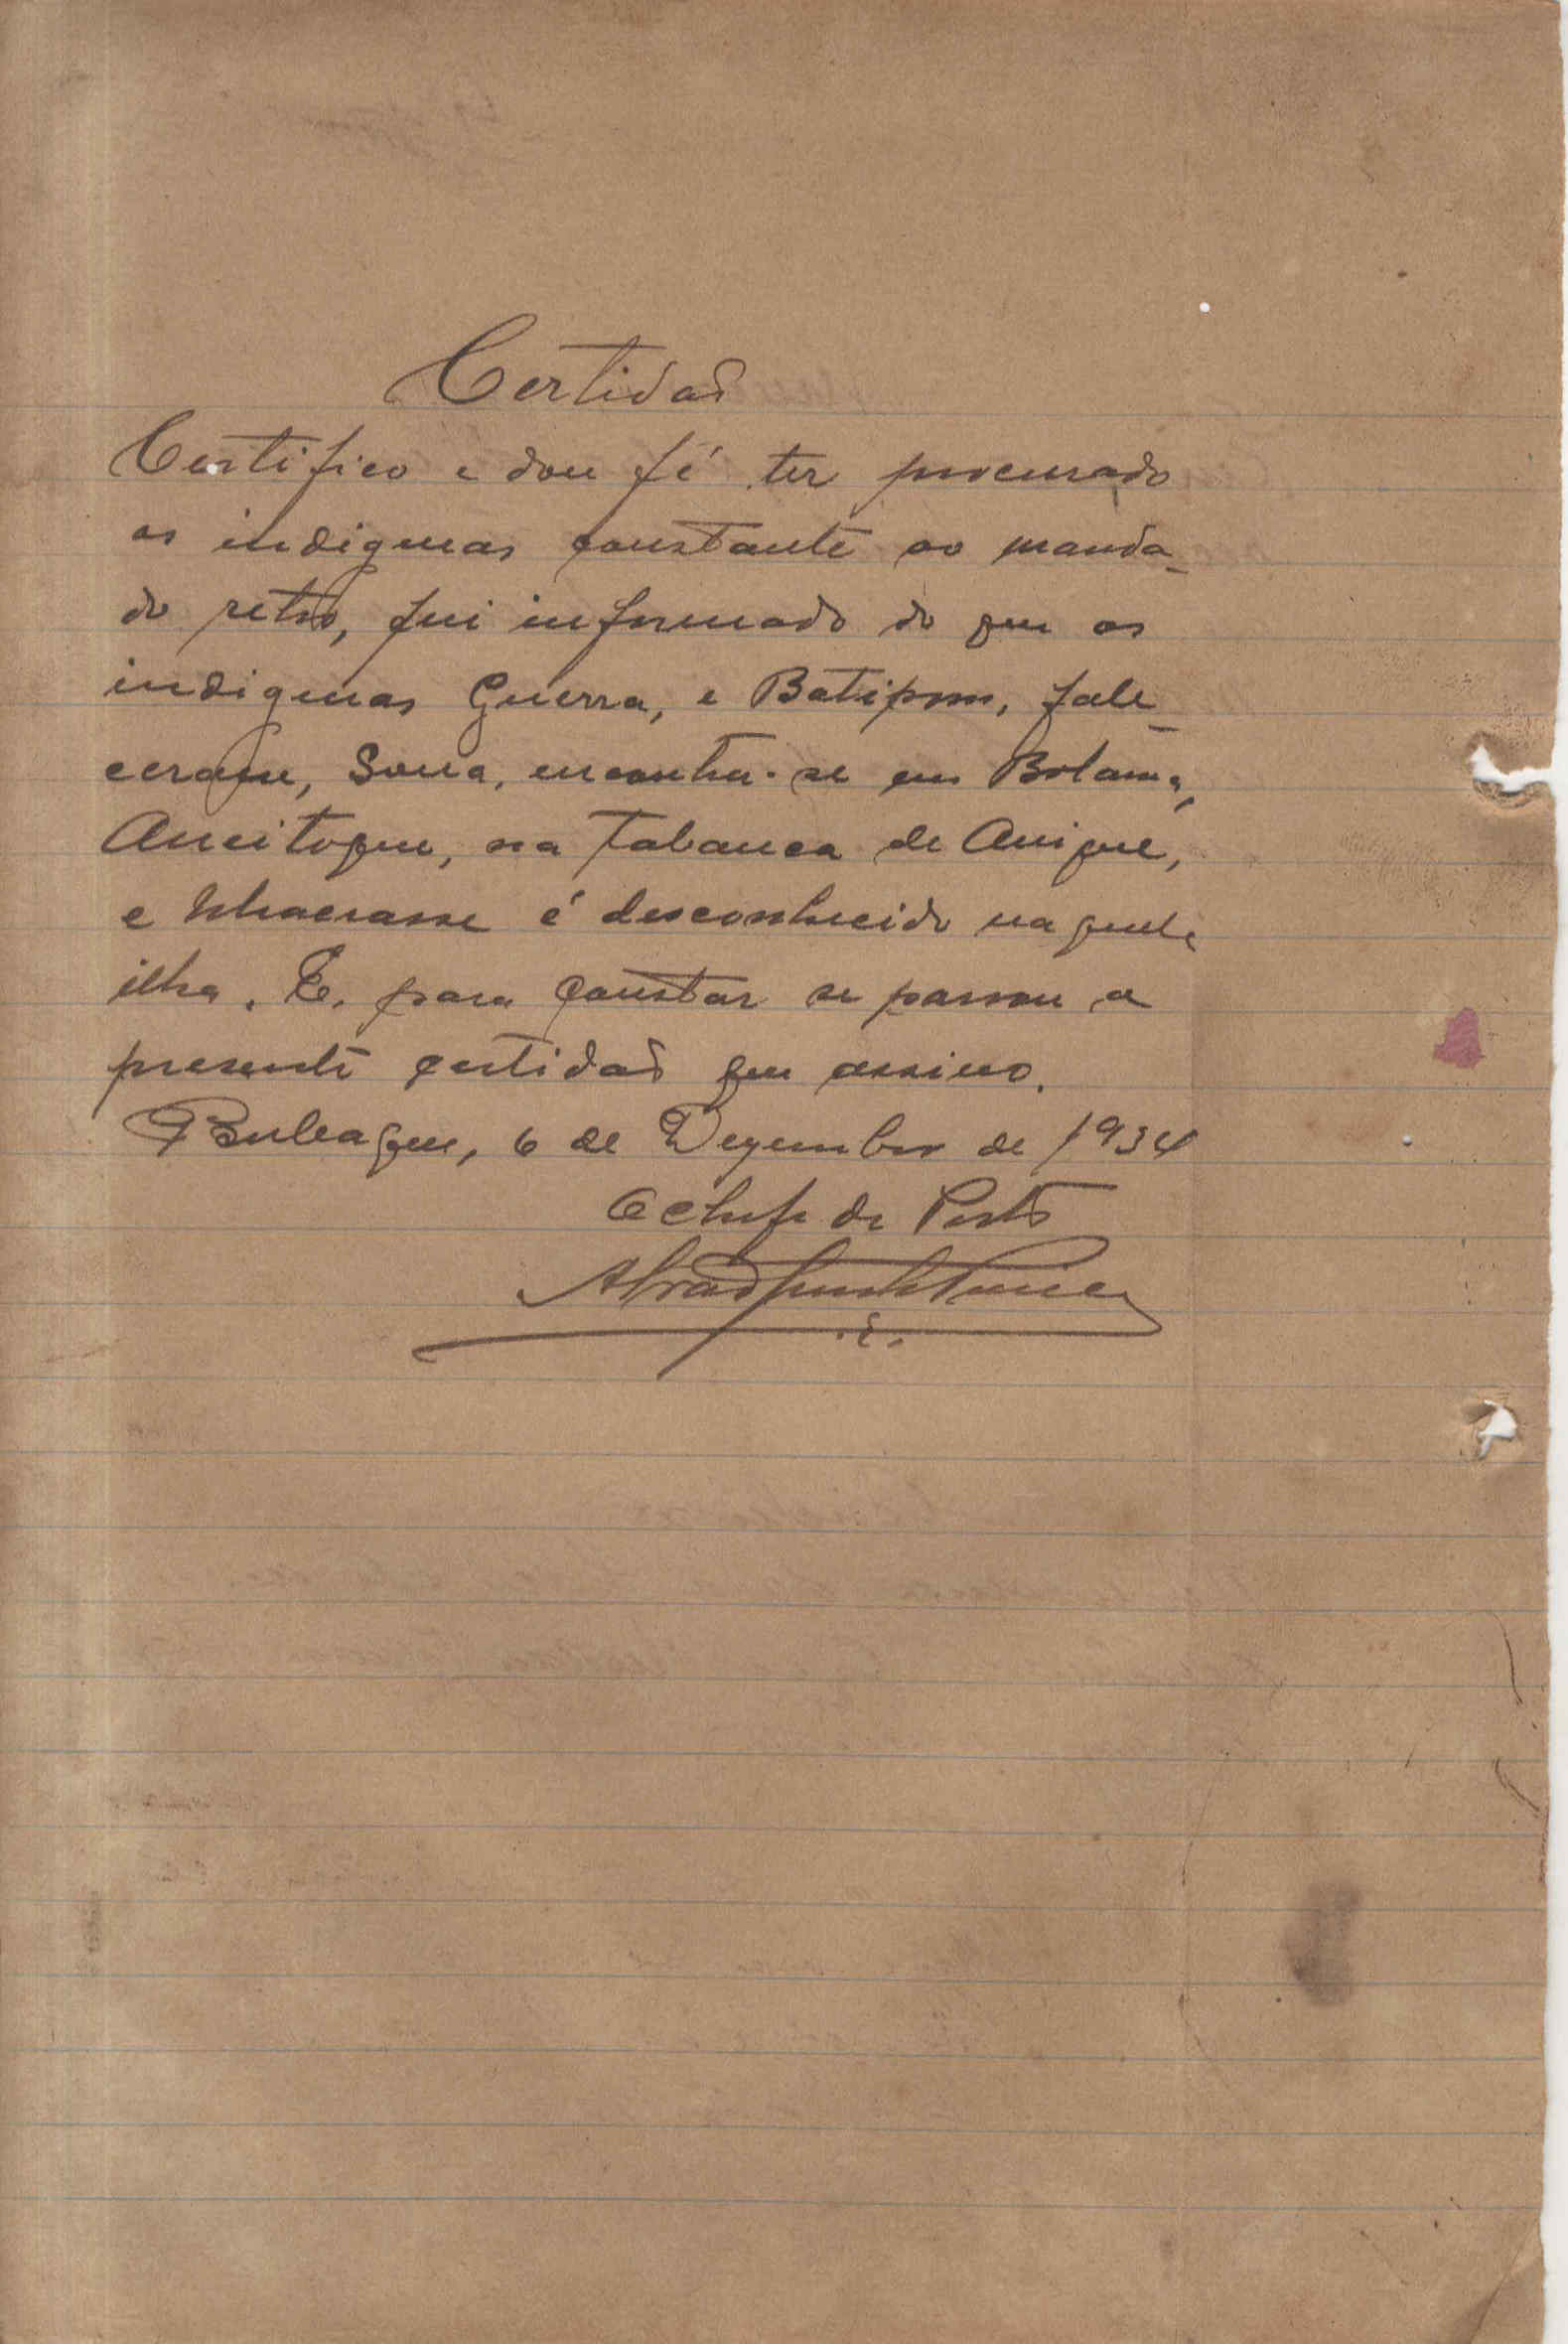 Certidão
Certifico e dou fé ter procurado
os indigenas constante ao manda-
do retro, fui informado do que os
indigenas Guerra, e Batipom, fale-
ceram, Soua, encontra-se em Bolama,
Aneitoque, na tabanca de Anipue,
e é desconhecido naquela
ilha. E, para constar se passou a
presente certidão que assino.
Bubaque, 6 de Dezembro de 1934
O Chefe de Posto